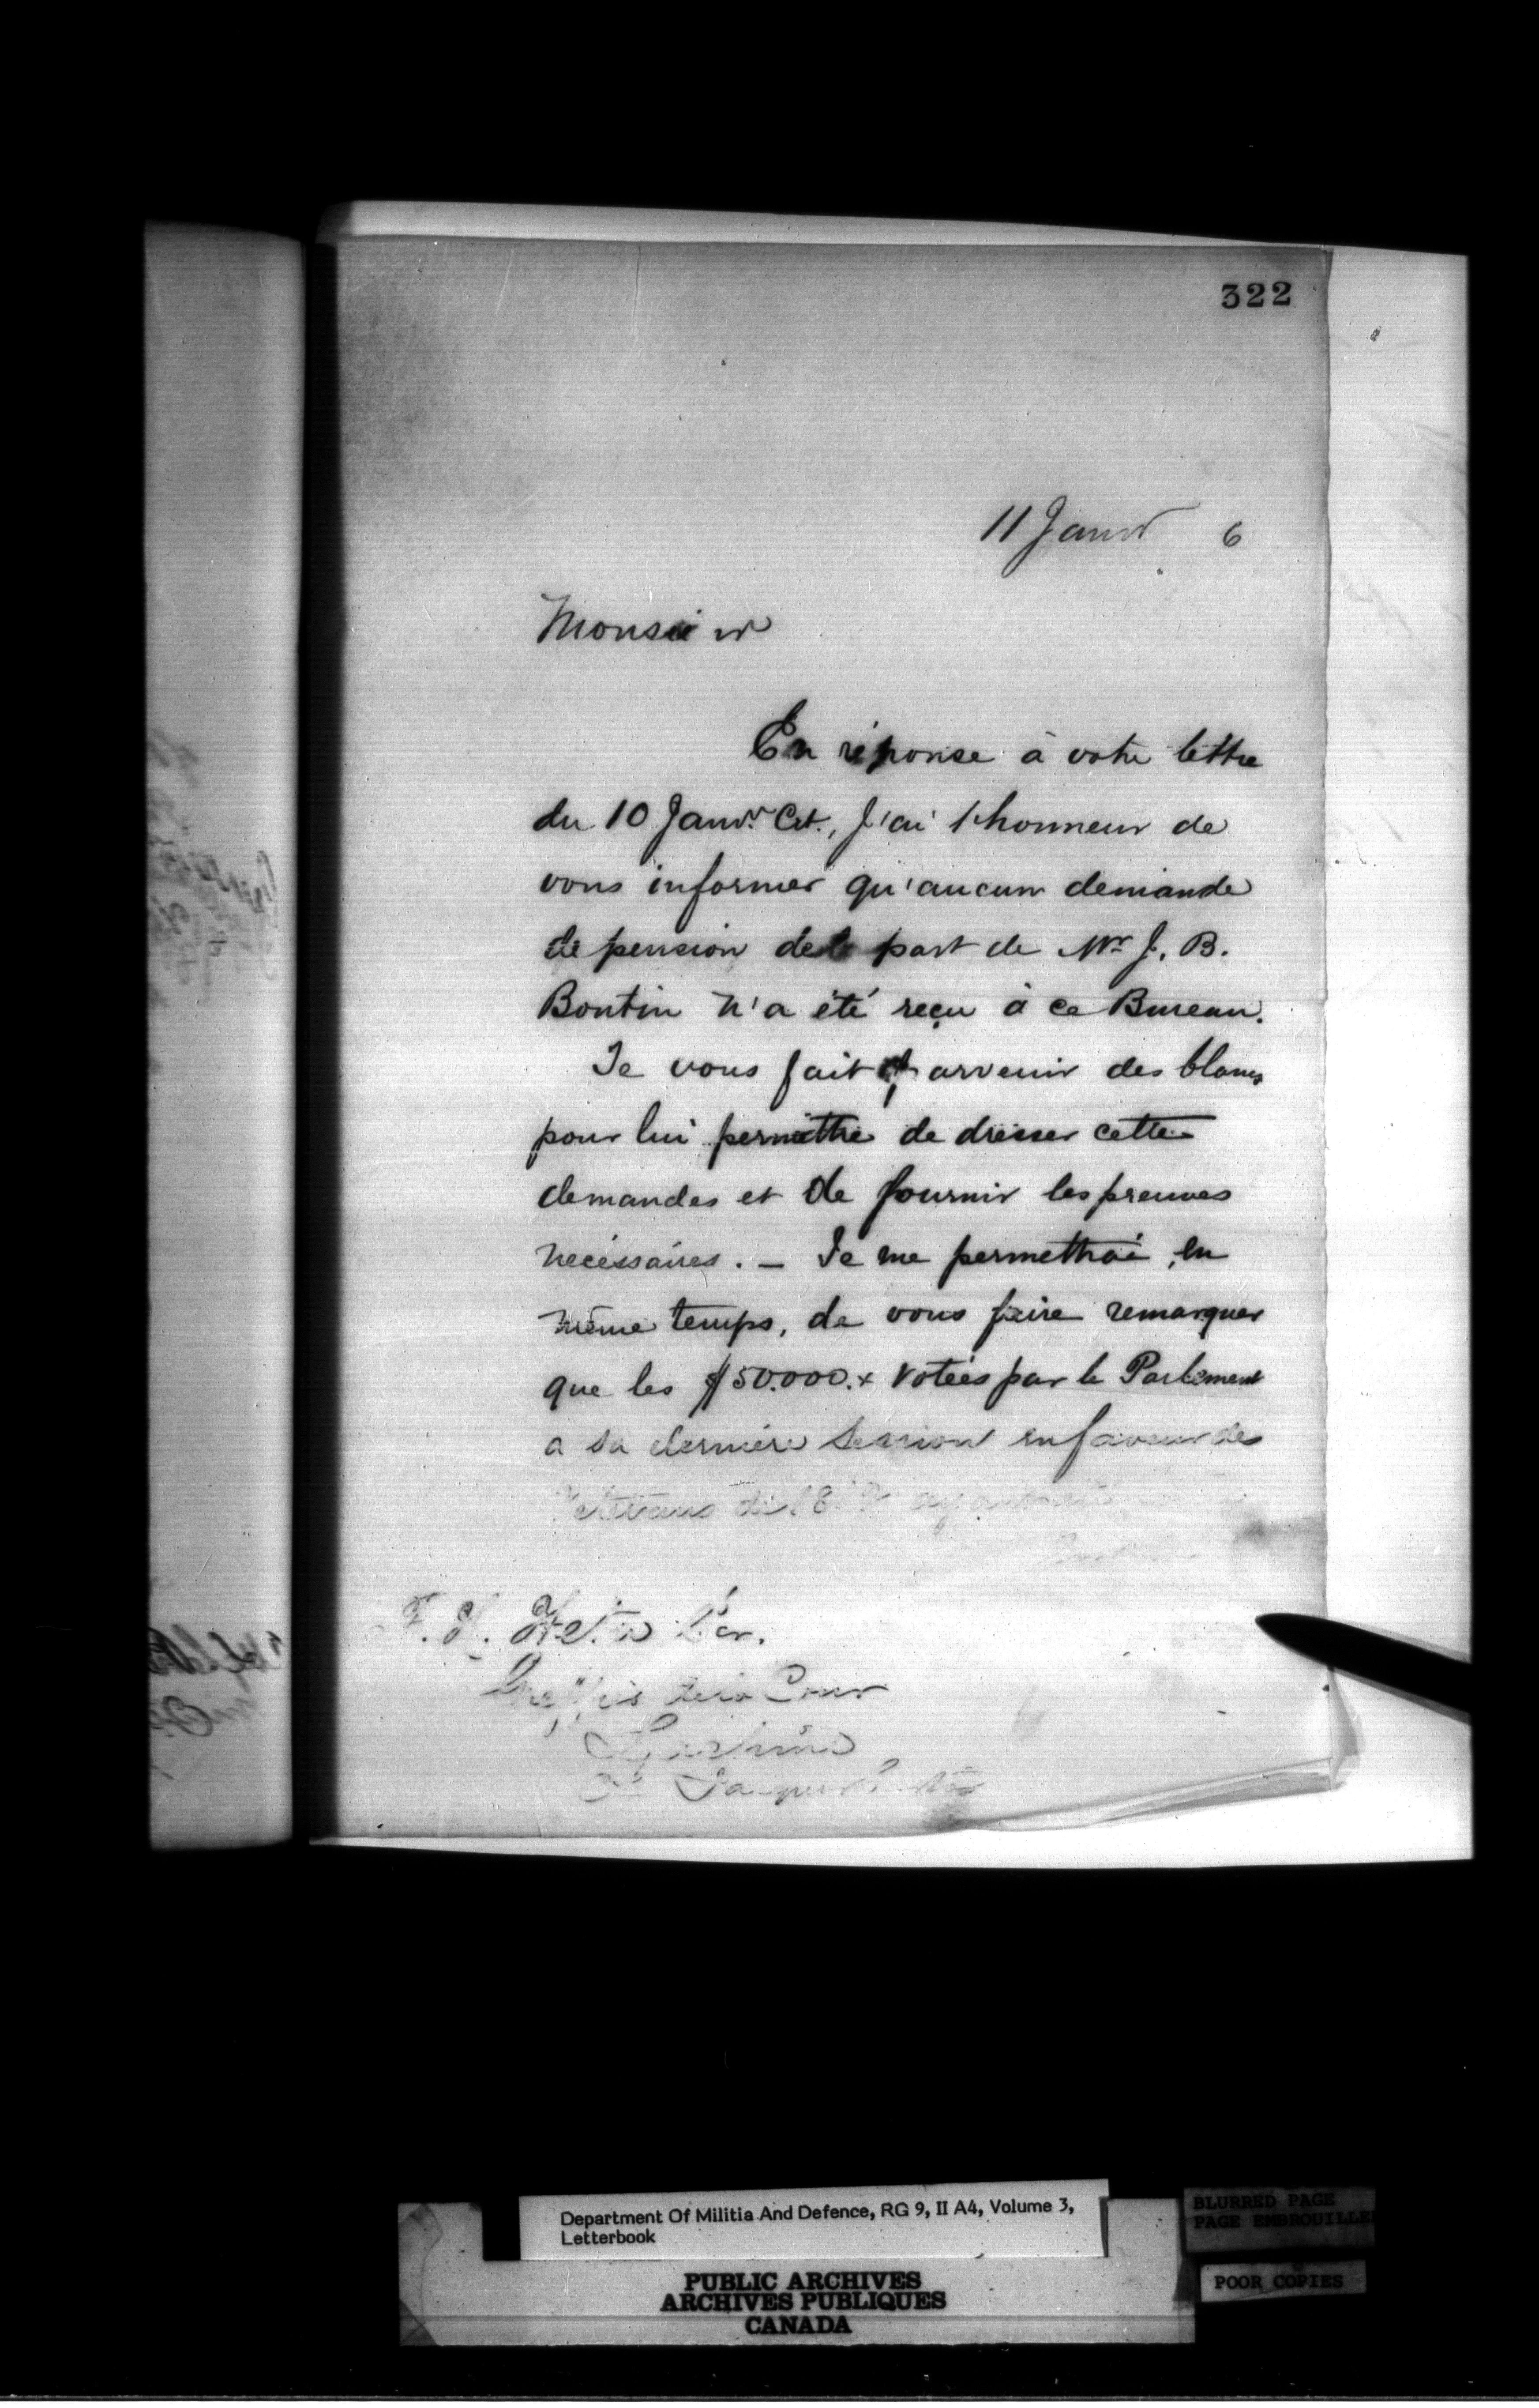 322
11 Janvr 6
Monsieur
En réponse à votre lettre
du 10 Janvr. Crt., J'ai l'honneur de
vous informer qu'aucun demande
de pension de la part de Mr J. B.
Boutin n'a été reçu à ce Bureau.
Je vous fait parvenir des blancs
pour lui permettre de dresser cette
demandes et de fournir les preuves
necéssaires. — Je me permettrai, en
même temps, de vous faire remarquer
que les $50.000.x votées par le Parlement
a sa dernière Session en faveur des
Vétérans de 1812 ayant
F. H.
Cour
St Jacques
Department Of Militia And Defence, RG 9, II A4, Volume 3,
Letterbook
BLURRED PAGE
PAGE EMBROUILLE
POOR COPIES
PUBLIC ARCHIVES
ARCHIVES PUBLIQUES
CANADA